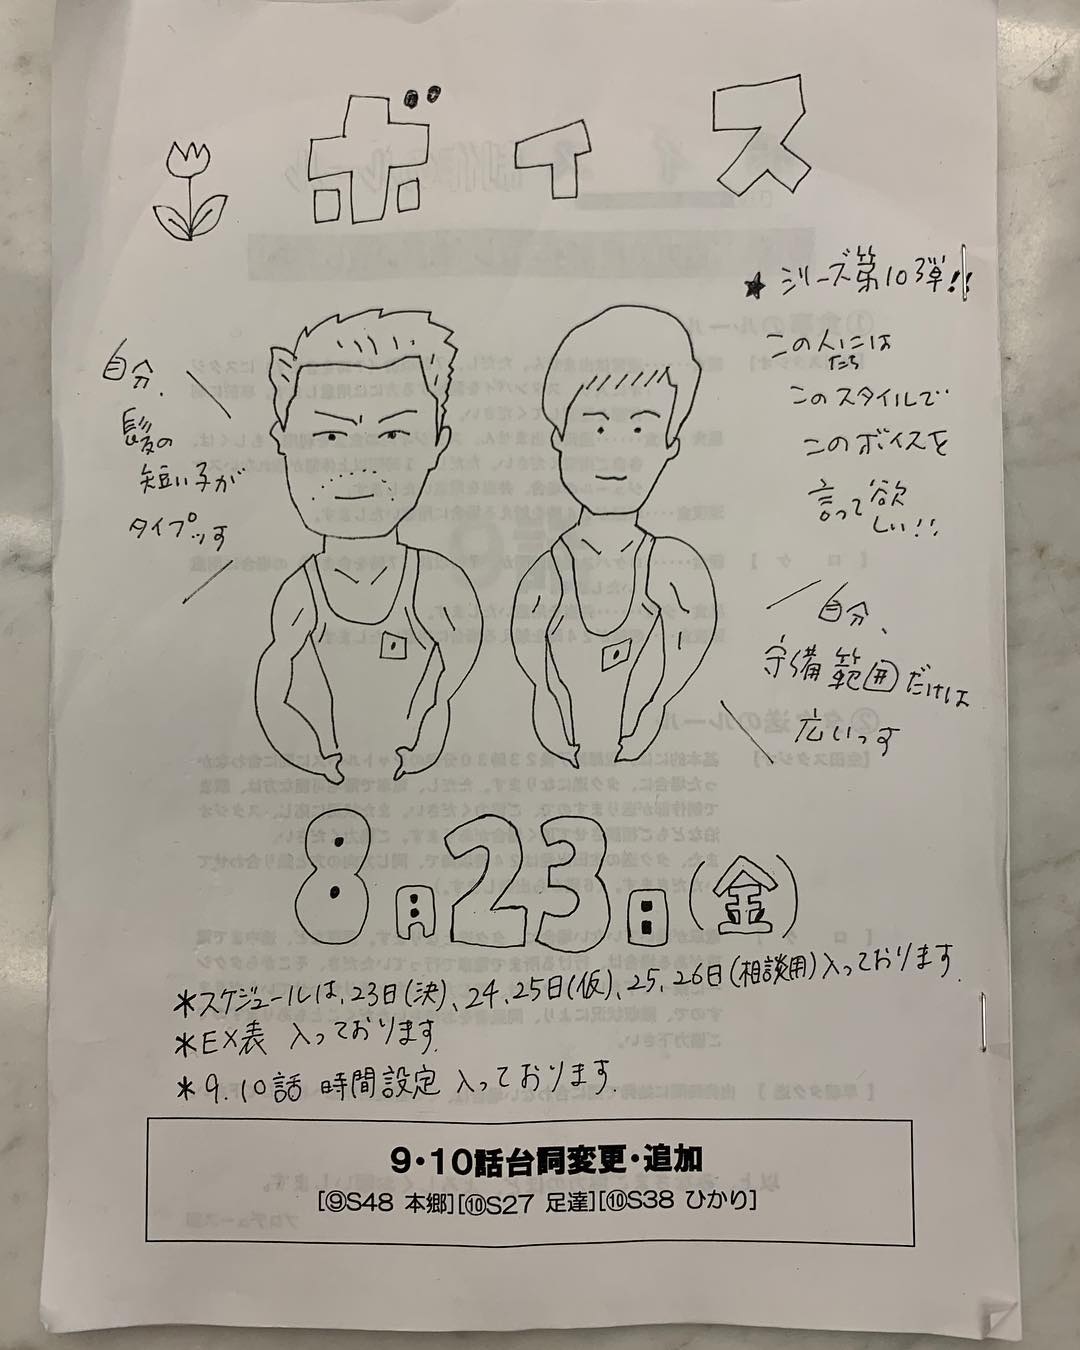 ボイス
★シリーズ第10弾!!
この人には
たち
このスタイルで
このボイスを
言って欲
しい!!
自分、
髪の
短い子が
タイプっす
自分、
守備範囲だけは
広いっす
8月23日(金)
*スケジュールは、23日(決)、24、25日(仮)、25、26日(相談用)入っております.
*EX表 入っております.
*9.10話 時間設定 入っております.
9・10話台詞変更・追加
[⑨S48 本郷][⑩S27 足達][⑩S38 ひかり]